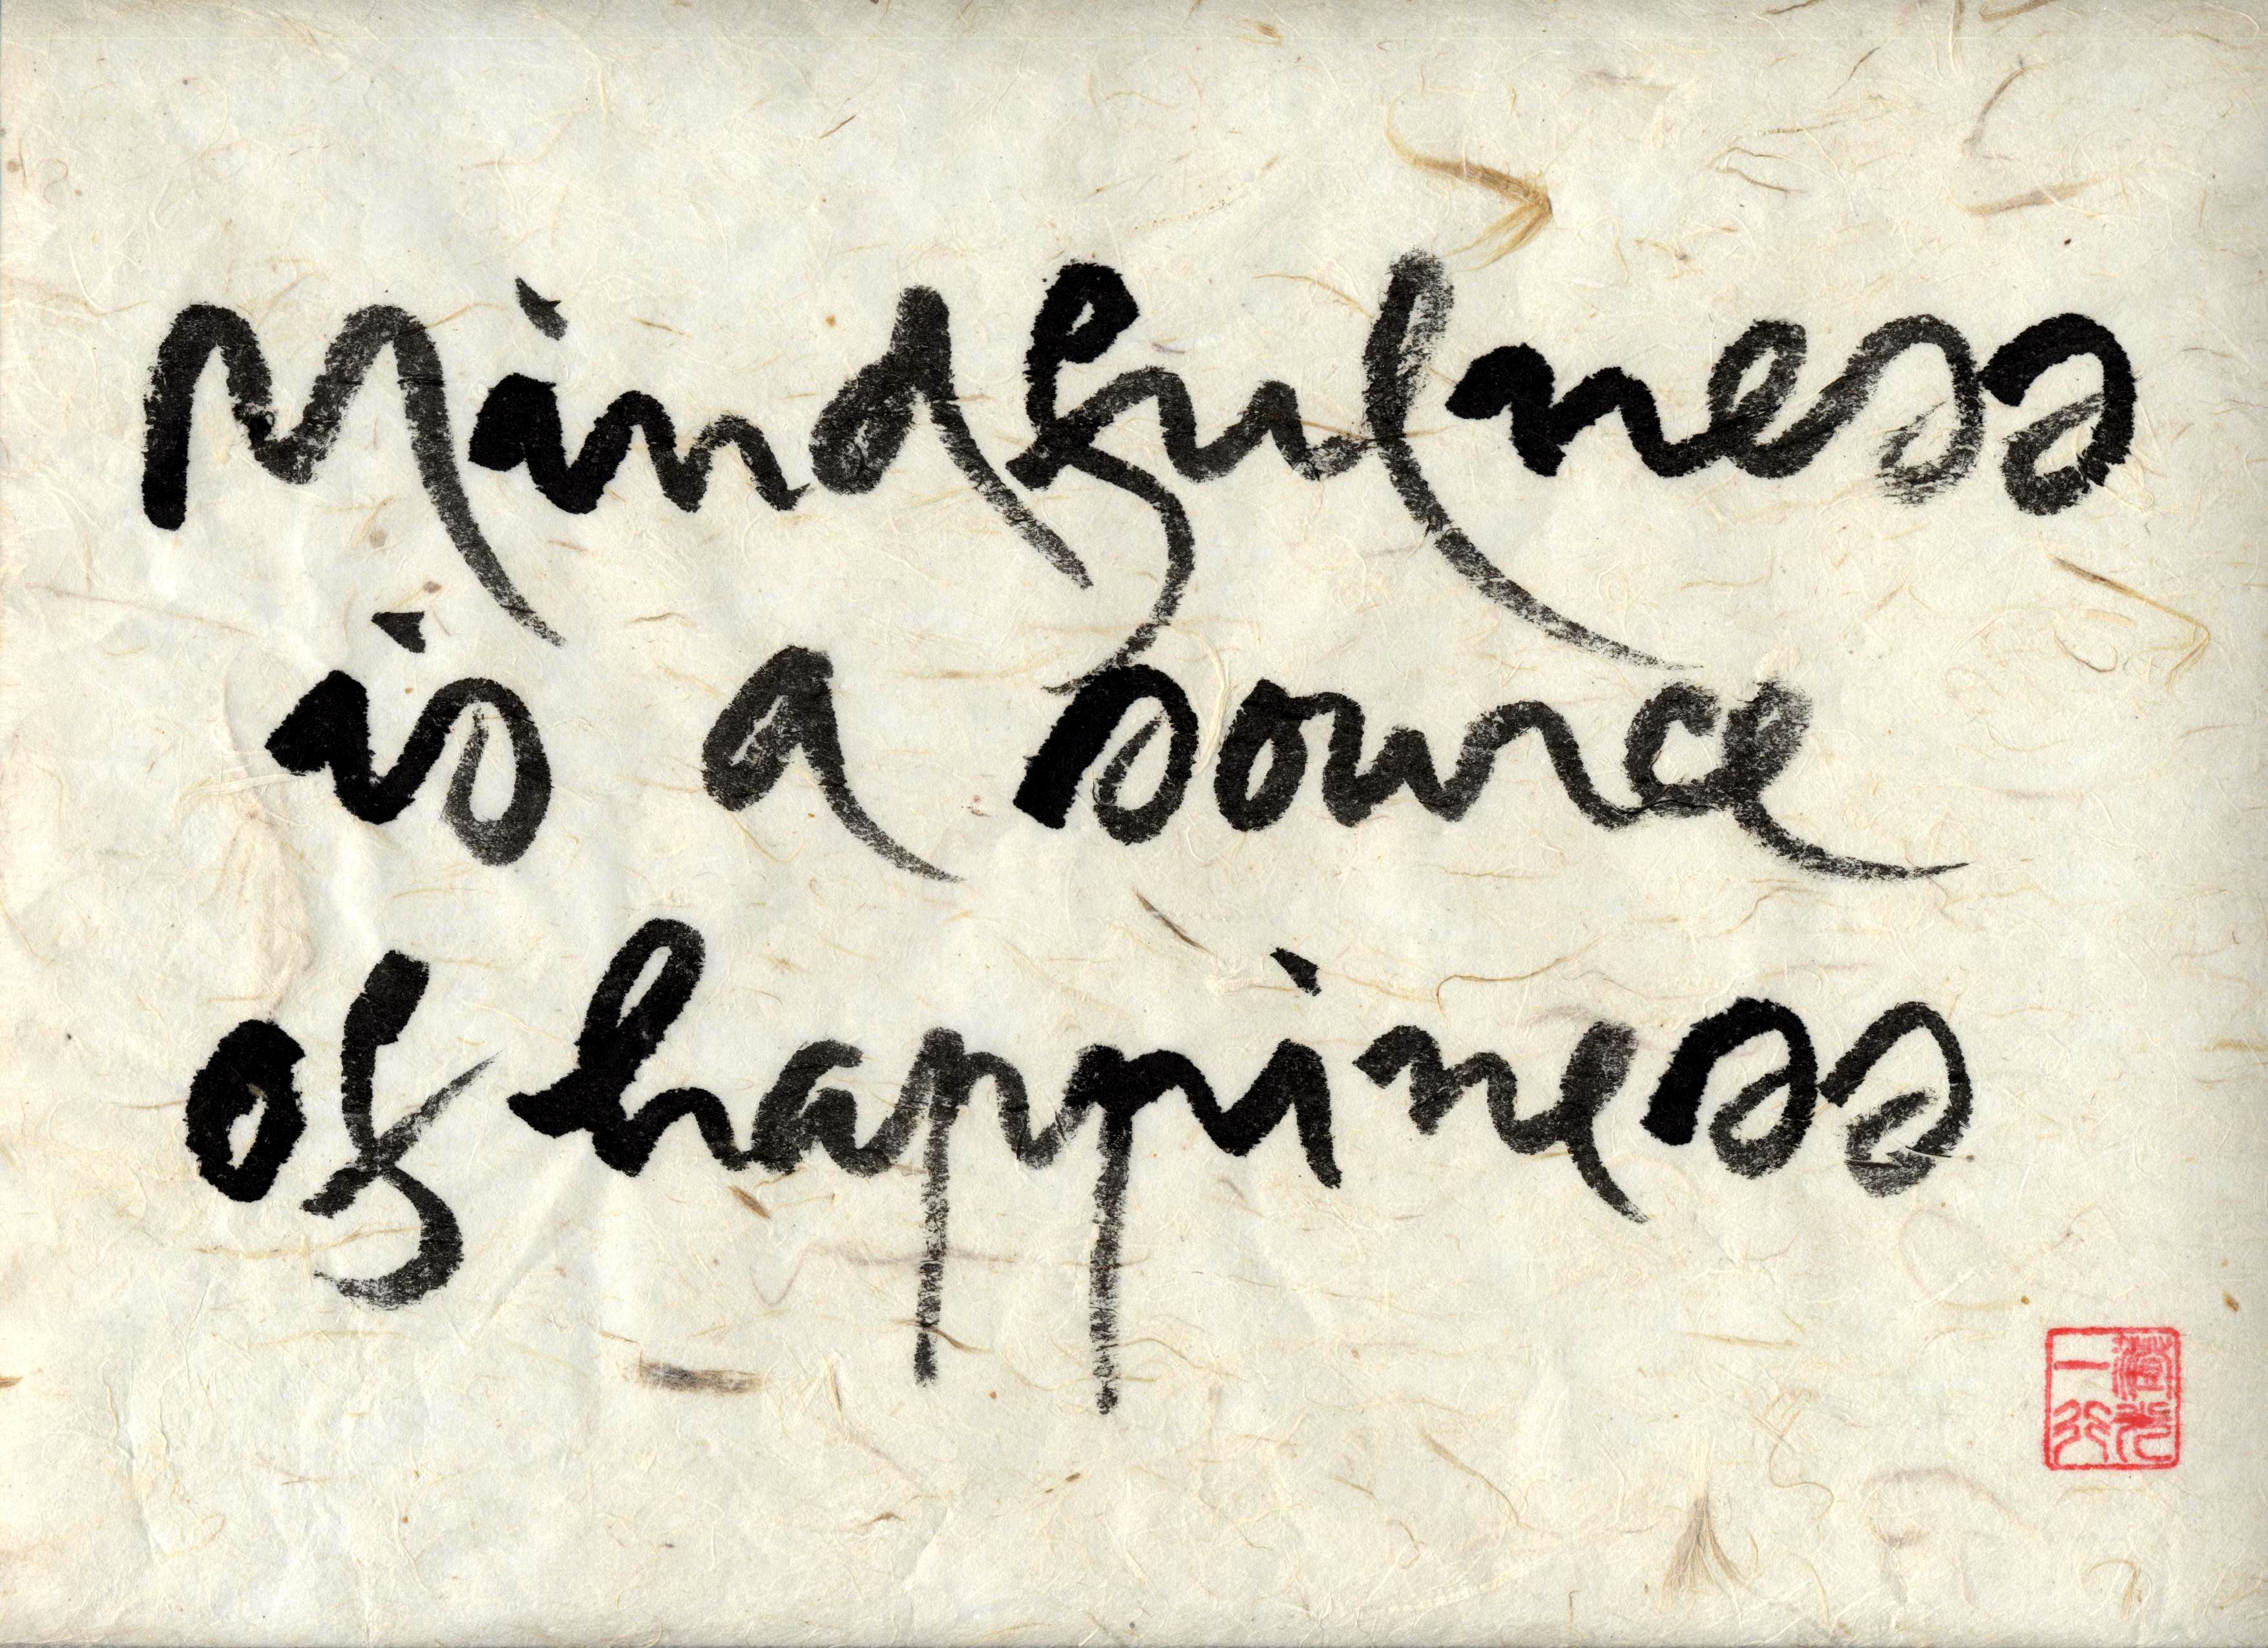 Mindfulness
is a source
of happiness
一行